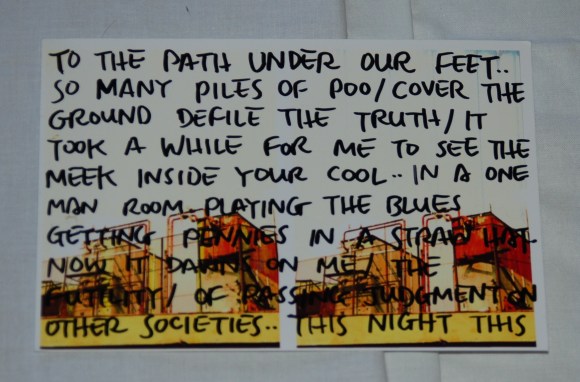 TO THE PATH UNDER OUR FEET..
SO MANY PILES OF POO/COVER THE
GROUND DEFILE THE TRUTH/IT
TOOK A WHILE FOR ME TO SEE THE
MEEK INSIDE YOUR COOL.. IN A ONE
MAN ROOM PLAYING THE BLUES
GETTING PENNIES IN A STRAW HAT
NOW IT DAWNS ON ME/ THE
FUTILITY/ OF PASSING JUDGMENT ON
OTHER SOCIETIES.. THIS NIGHT THIS